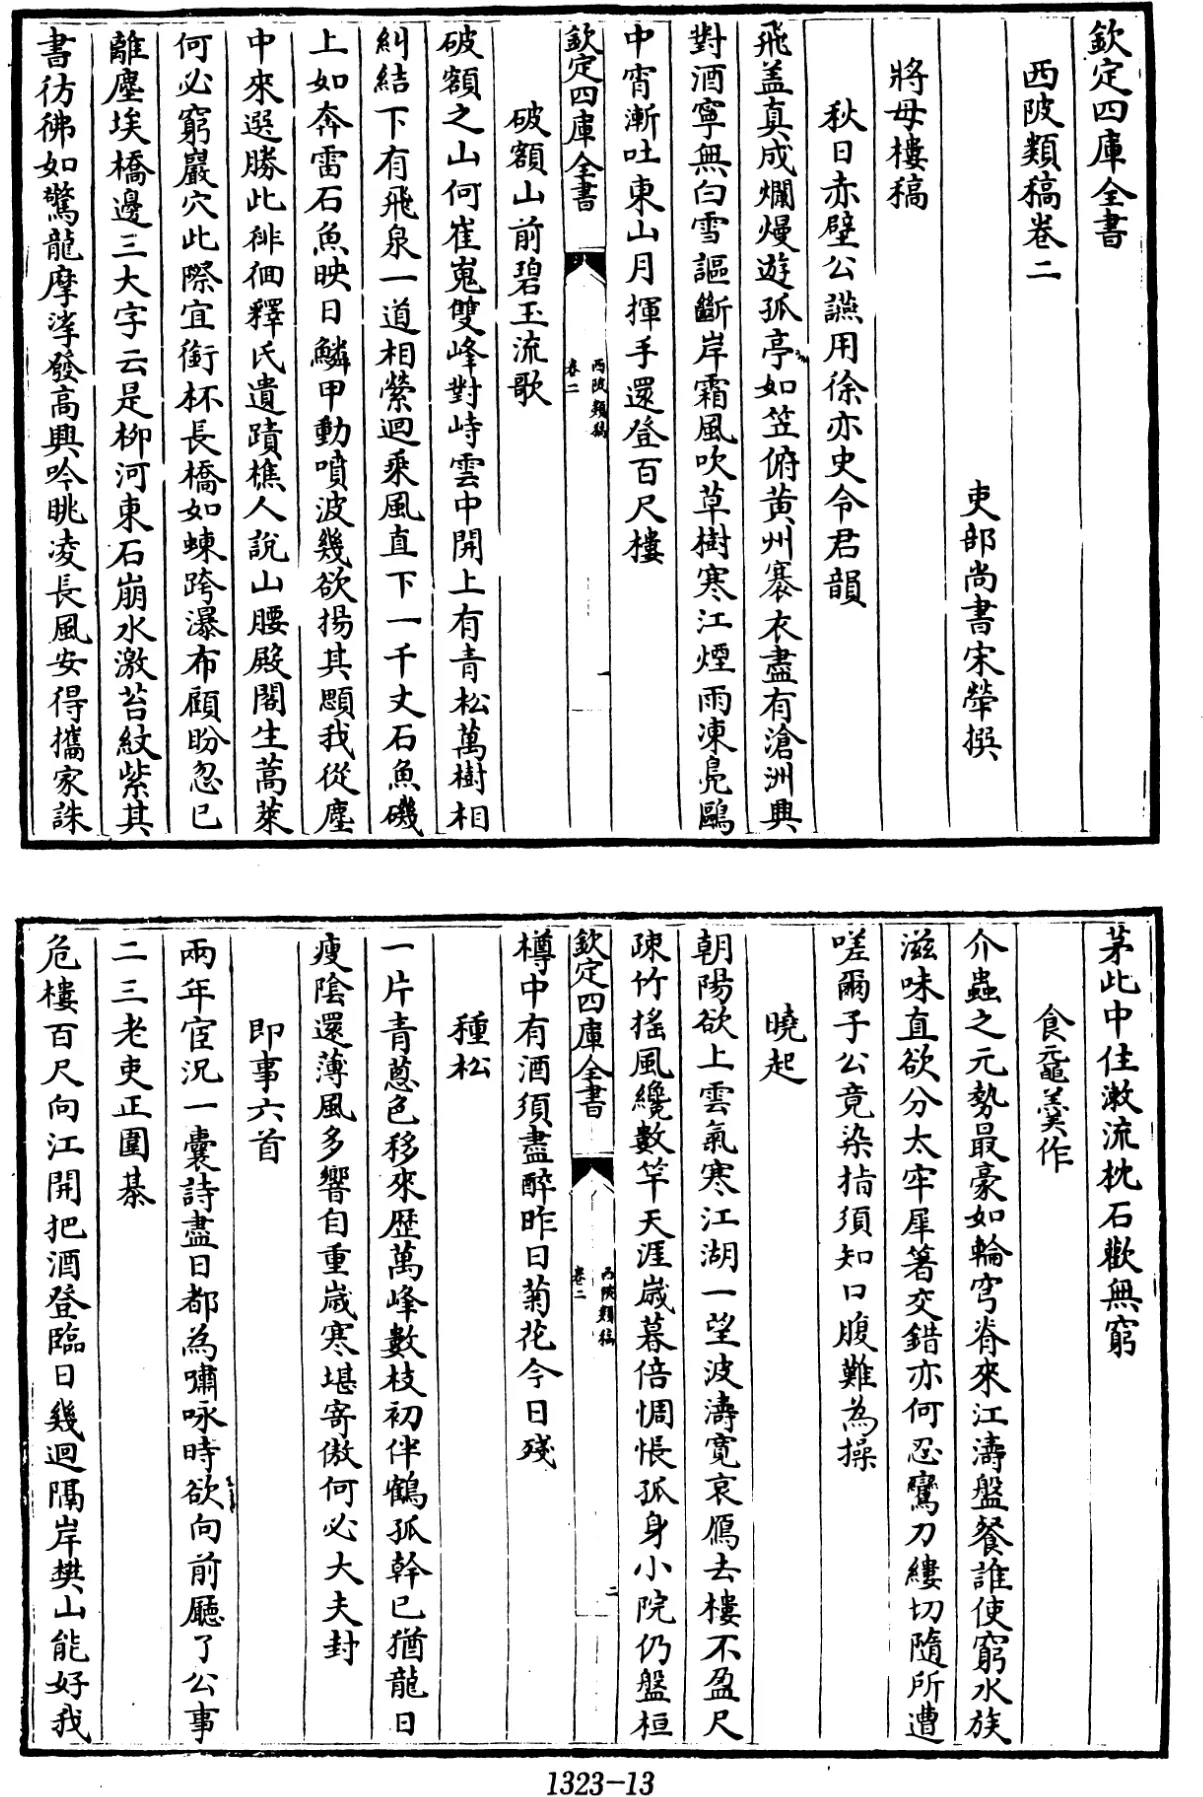 欽定四庫全書
西陂類稿卷二
吏部尚書宋犖撰
將母樓稿
秋日赤壁公讌用徐亦史令君韻
飛盖真成爛熳遊孤亭如笠俯黄州褰衣盡有滄洲興
對酒寧無白雪謳斷岸霜風吹草樹寒江煙雨凍鳧鷗
中宵漸吐東山月揮手還登百尺樓
欽定四庫全書
西陂類稿
卷二
一
破額山前碧玉流歌
破額之山何崔嵬雙峰對峙雲中開上有青松萬樹相
糾結下有飛泉一道相縈迴乘風直下一千丈石魚磯
上如奔雷石魚映日鱗甲動噴波幾欲揚其顋我從塵
中來選勝此徘徊釋氏遺蹟樵人說山腰殿閣生蒿萊
何必窮巖穴此際宜銜杯長橋如蝀跨瀑布顧盼忽已
離塵埃橋邊三大字云是柳河東石崩水激苔紋紫其
書彷彿如驚龍摩挲發高興吟眺凌長風安得攜家誅
茅此中住漱流枕石歡無窮
食黿羮作
介蟲之元勢最豪如輪穹脊來江濤盤餐誰使窮水族
滋味直欲分太牢犀箸交錯亦何忍鸞刀縷切隨所遭
嗟爾子公竟染指須知口腹難為操
曉起
朝陽欲上雲氣寒江湖一望波濤寛哀鴈去樓不盈尺
疎竹搖風纔數竿天涯歲暮倍惆悵孤身小院仍盤桓
欽定四庫全書
西陂類稿
卷二
二
樽中有酒須盡醉昨日菊花今日殘
種松
一片青蔥色移來歴萬峰數枝初伴鶴孤幹已猶龍日
瘦陰還薄風多響自重歲寒堪寄傲何必大夫封
即事六首
兩年宦況一囊詩盡日都為嘯咏時欲向前廳了公事
二三老吏正圍棊
危樓百尺向江開把酒登臨日幾迴隔岸樊山能好我
1323-13